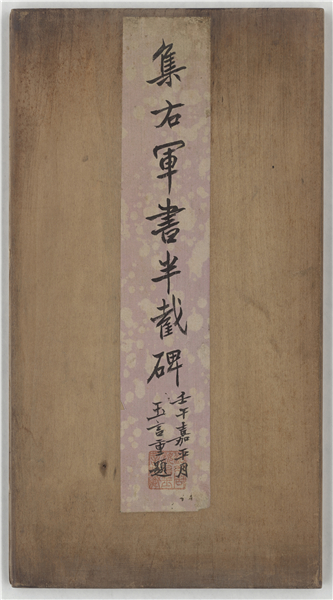 集右軍書半截碑
壬午嘉平月
玉言重題